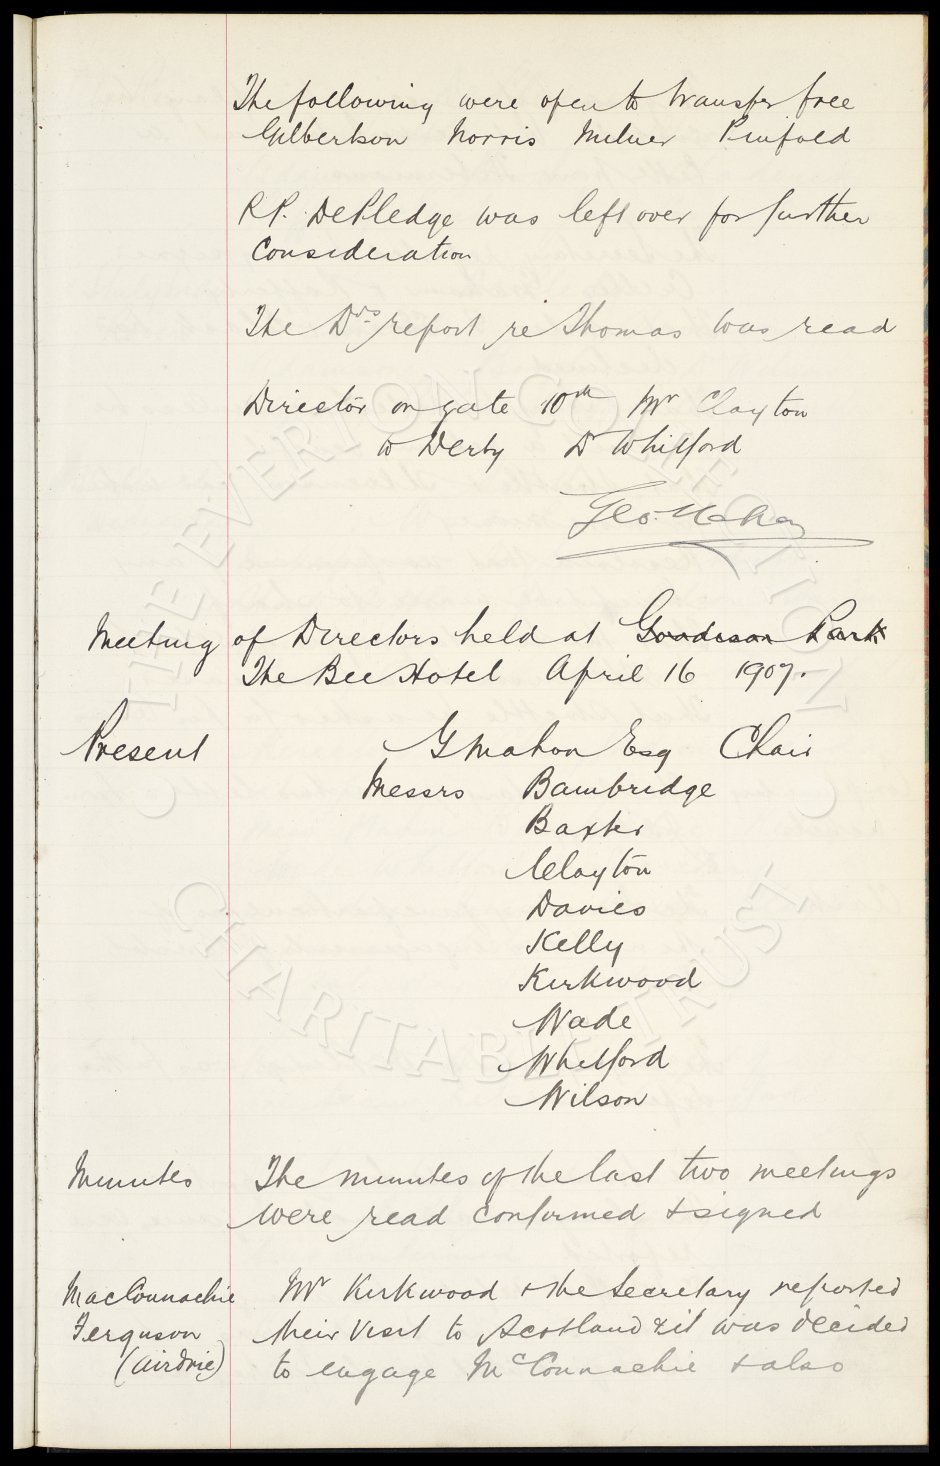 The following were open to transfer free
Gilbertson Norris Milner Pinfold
R P. DePledge was left over for further
Consideration
The Drs report re Thomas was read
Director on gate 10th Mr Clayton
to Derby Dr Whitford
Geo. Mahon
Meeting of Directors held at Goodison Park
The Bee Hotel April 16 1907.
Present G Mahon Esq Chair
Messrs Bainbridge
Baxter
Clayton
Davies
Kelly
Kirkwood
Wade
Whitford
Wilson
Minutes The minutes of the last two meetings
were read confirmed & signed
MacConnachie Mr Kirkwood & the Secretary reported
Ferguson their visit to Scotland & it was decided
(Airdrie) to engage McConnachie & also
THE EVERTON COLLECTION
CHARITABLE TRUST